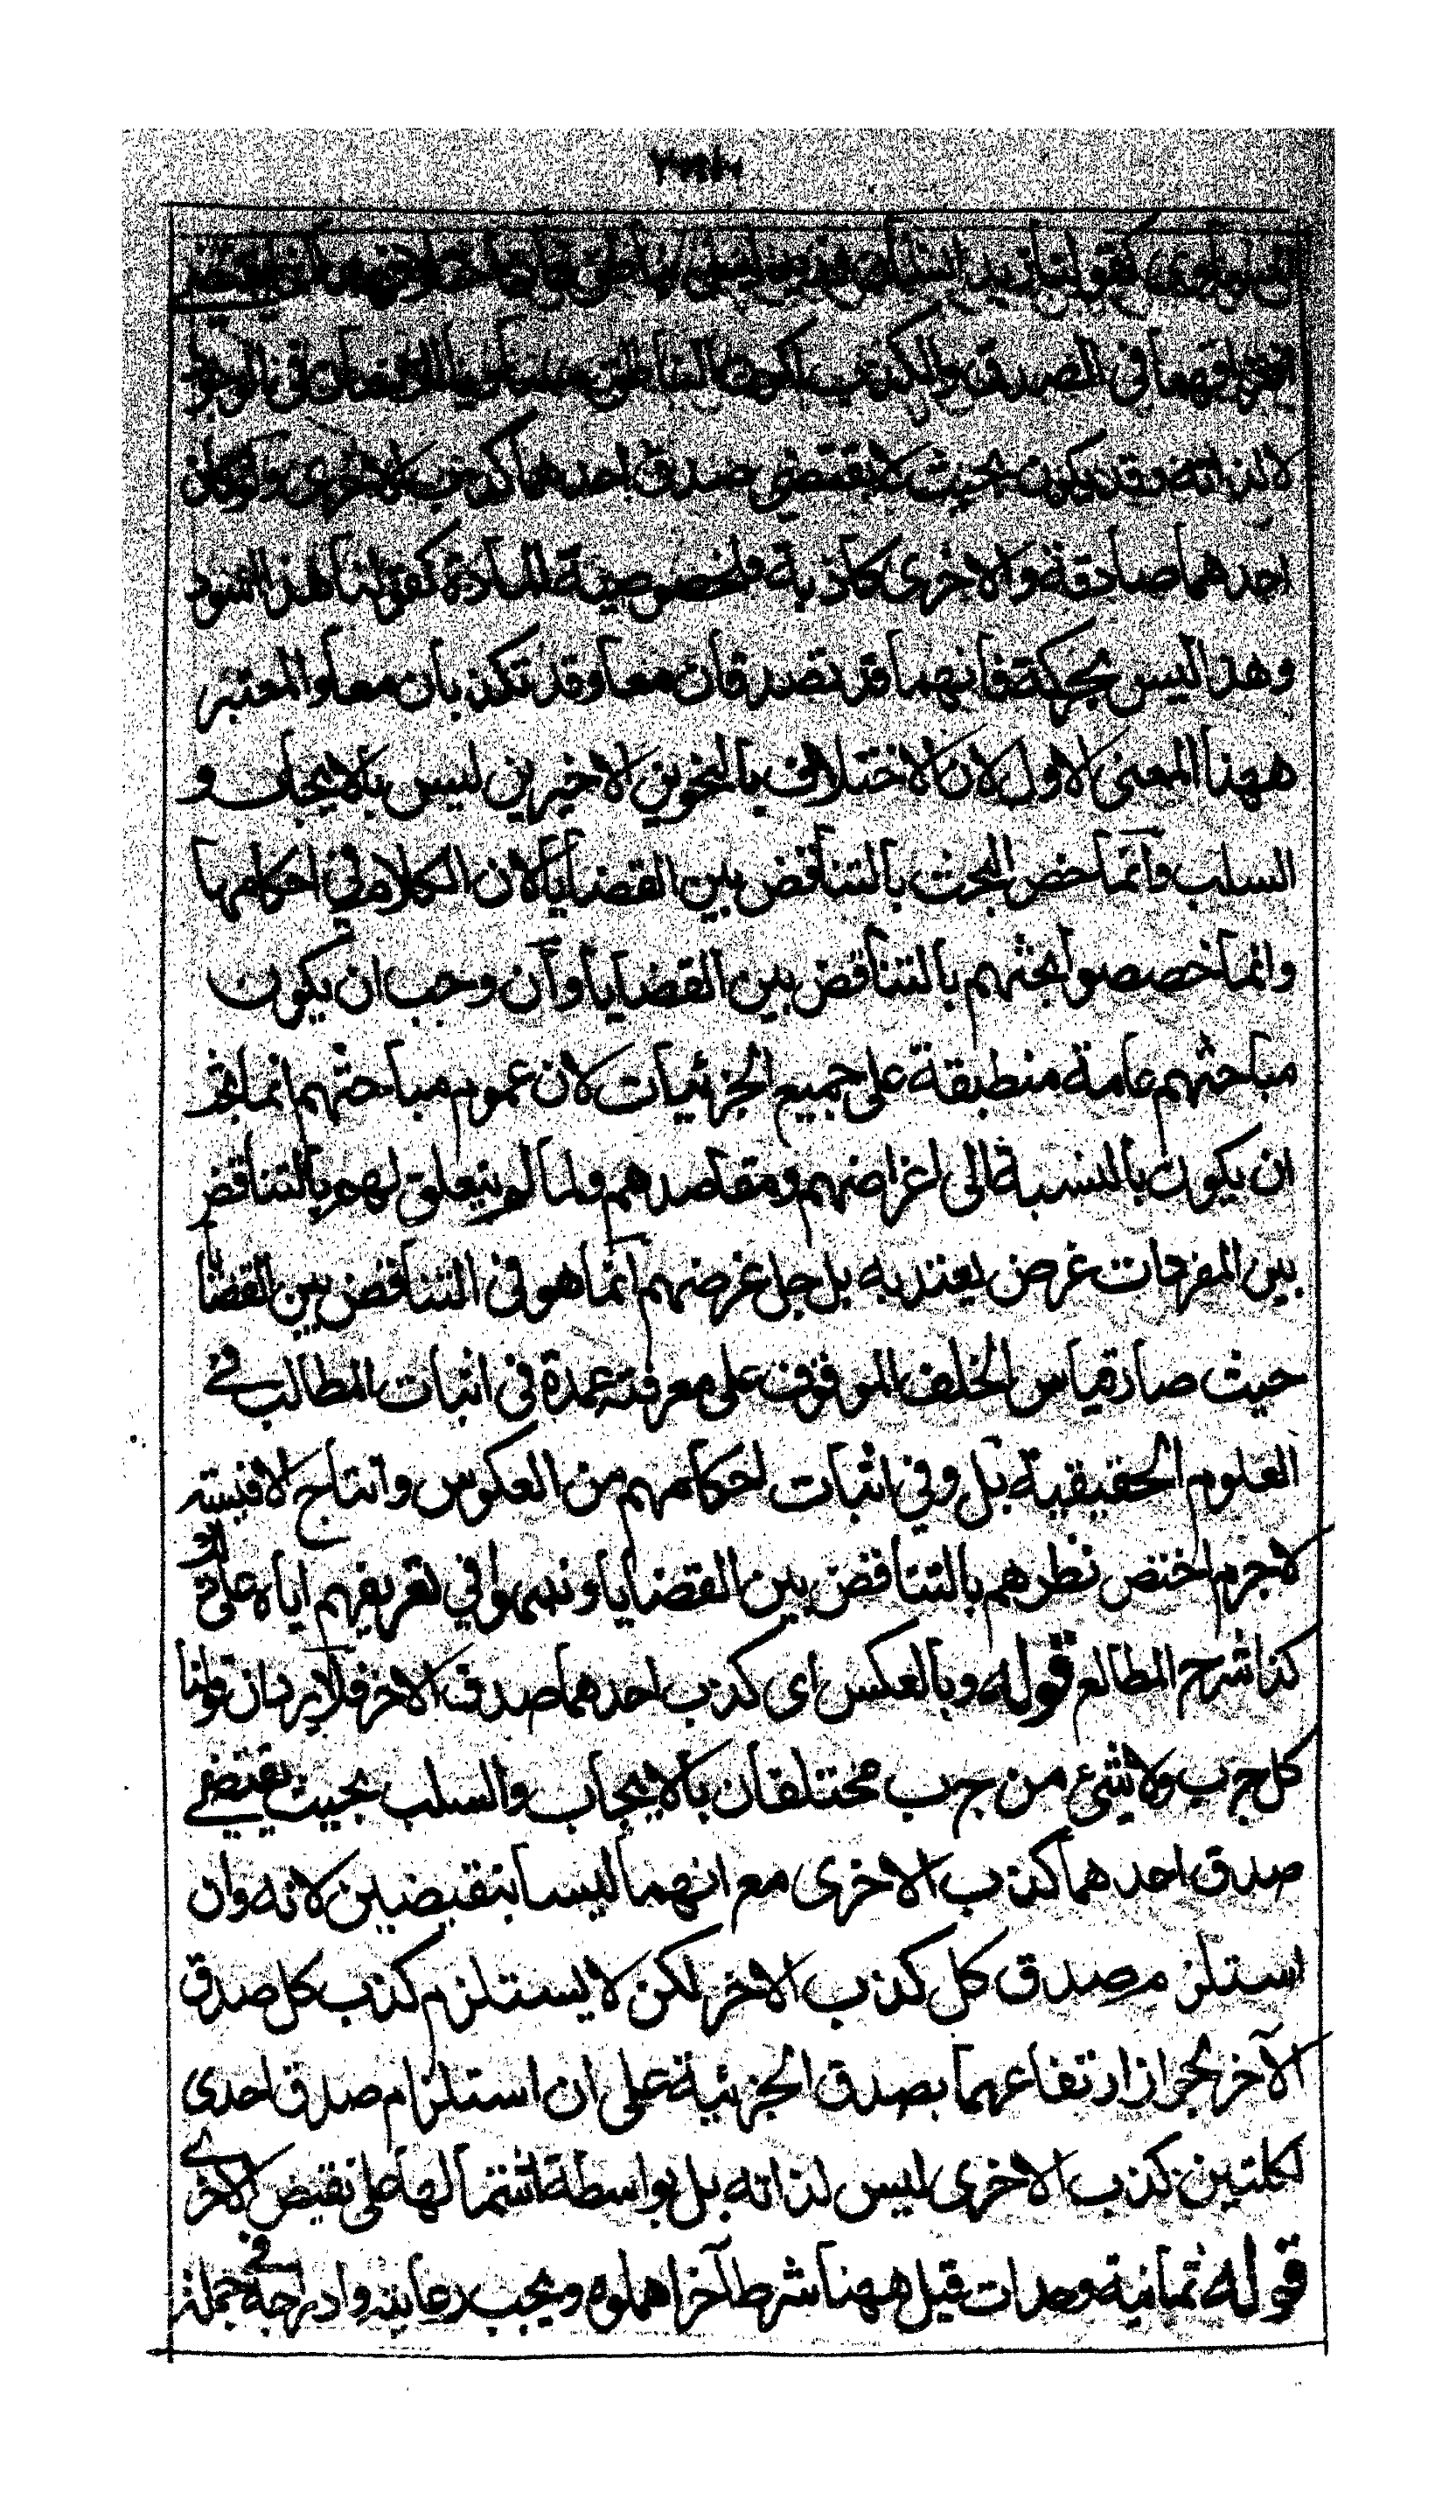 المساوى كقولنا زيد انسان زيد ليس بناطق فان
اقترافهما فى الصدق والكذب لكون الناطق مساويا للانسان فى الوجود
لا لذاته وقد يكون بحيث لا يقتضى صدق احدهما كذب الاخرى وان كان
احدهما صادقة والاخرى كاذبة فلخصوصية المادة كقولنا هذا اسود
وهذا ليس بحركة فانهما قد تصدقان معا وقد تكذبان معا والمعتبر
ههنا المعنى الاول لان الاختلاف بالنحوين الاخيرين ليس بالايجاب و
السلب وانما خص البحث بالتناقض بين القضايا لان الكلام في احكامها
وانما خصصوا بحثهم بالتناقض بين القضايا وآن وجب ان يكون
مباحثهم عامة منطبقة على جميع الجزئيات لان عموم مباحثهم انما يجب
ان يكون بالنسبة الى اغراضهم ومقاصدهم ولما لم يتعلق لهم بالتناقض
بين المفردات غرض يعتد به بل جل غرضهم انما هو فى التناقض بين القضايا
حيث صار قياس الخلف الموقوف على معرفته عمدة فى اثبات المطالب فى
العلوم الحقيقية بل وفي اثبات احكامهم من العكوس وانتاج الاقيسة
لا جرم اختص نظرهم بالتناقض بين القضايا ونبهوا في تعريفهم اياه على
كذا شرح المطالع قوله وبالعكس اى كذب احدهما صدق الاخر فلا يرد ان قولنا
كل ج ب ولا شئ من ج ب مختلفان بالايجاب والسلب بحيث يقتضى
صدق احدهما كذب الاخرى مع انهما ليسا بنقيضين لانه وان
استلزم صدق كل كذب الاخر لكن لا يستلزم كذب كل صدق
الآخر لجواز ارتفاعهما بصدق الجزئية على ان استلزام صدق احدى
لكلتين كذب الاخرى ليس لذاته بل بواسطة اشتمالها على نقيض الاخرى
قوله ثمانية وحدات قيل ههنا شرط آخر اهملوه ويجب رعايته وادراجه فى جملة